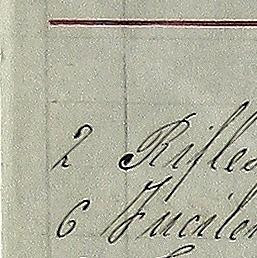 2 Rifles
6 Fuciler